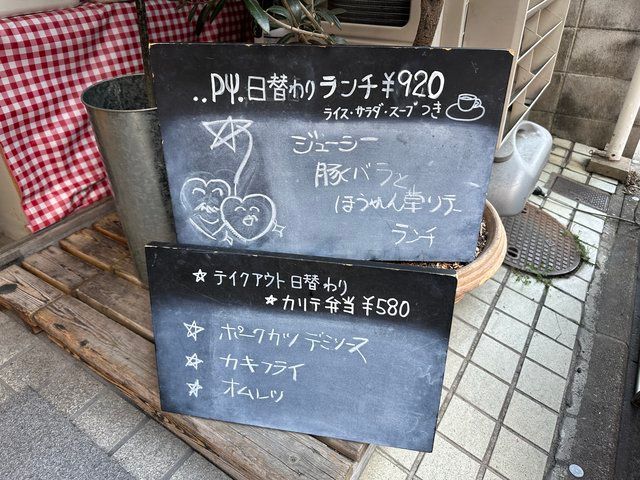 ..PY.日替わりランチ¥920
ライス・サラダ・スープつき
ジューシー
豚バラと
ほうれん草ソテー
ランチ
☆テイクアウト日替わり
★カリテ弁当¥580
☆ポークカツデミソース
☆カキフライ
☆オムレツ